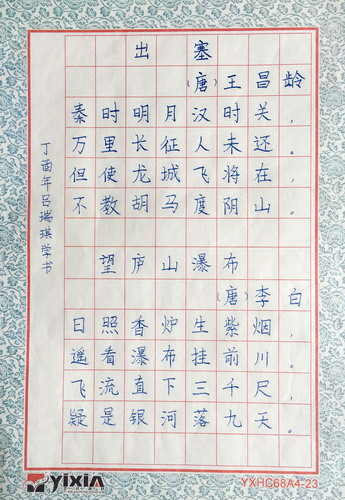 出塞
（唐）王昌龄
秦时明月汉时关，
万里长征人未还。
但使龙城飞将在，
不教胡马度阴山。
望庐山瀑布
（唐）李白
日照香炉生紫烟，
遥看瀑布挂前川。
飞流直下三千尺，
疑是银河落九天。
丁酉年吕瑞琪学书
YIXIN
YXHC68A4-23